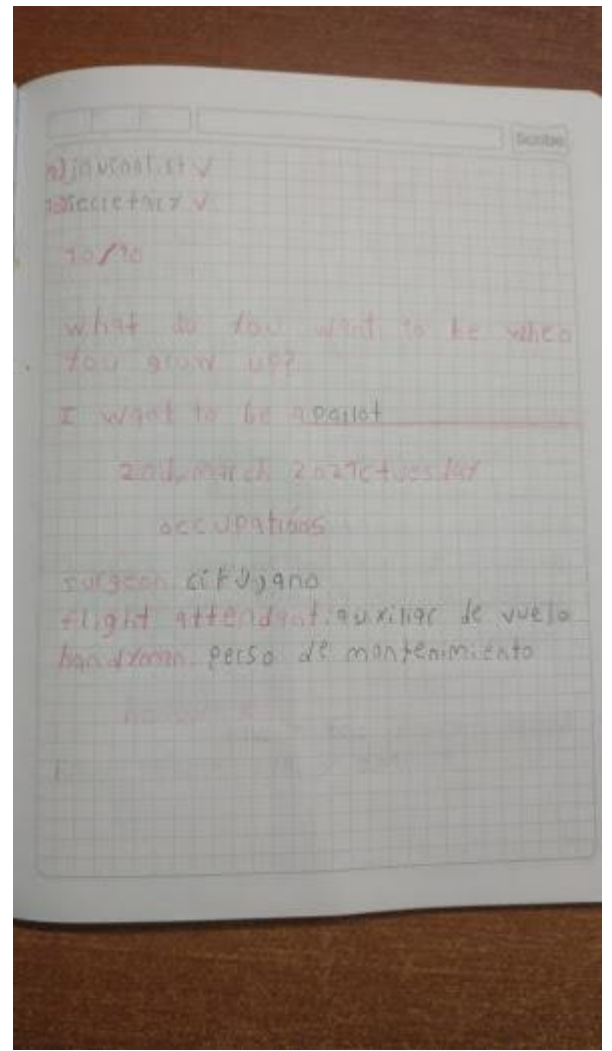 Scribe
journalist ✓
secretary ✓
10/10
what do you want to be when
you grow up?
I want to be a pailot
occupations
surgeon: cirujano
flight attendant: auxiliar de vuelo
handyman: perso de mantenimiento